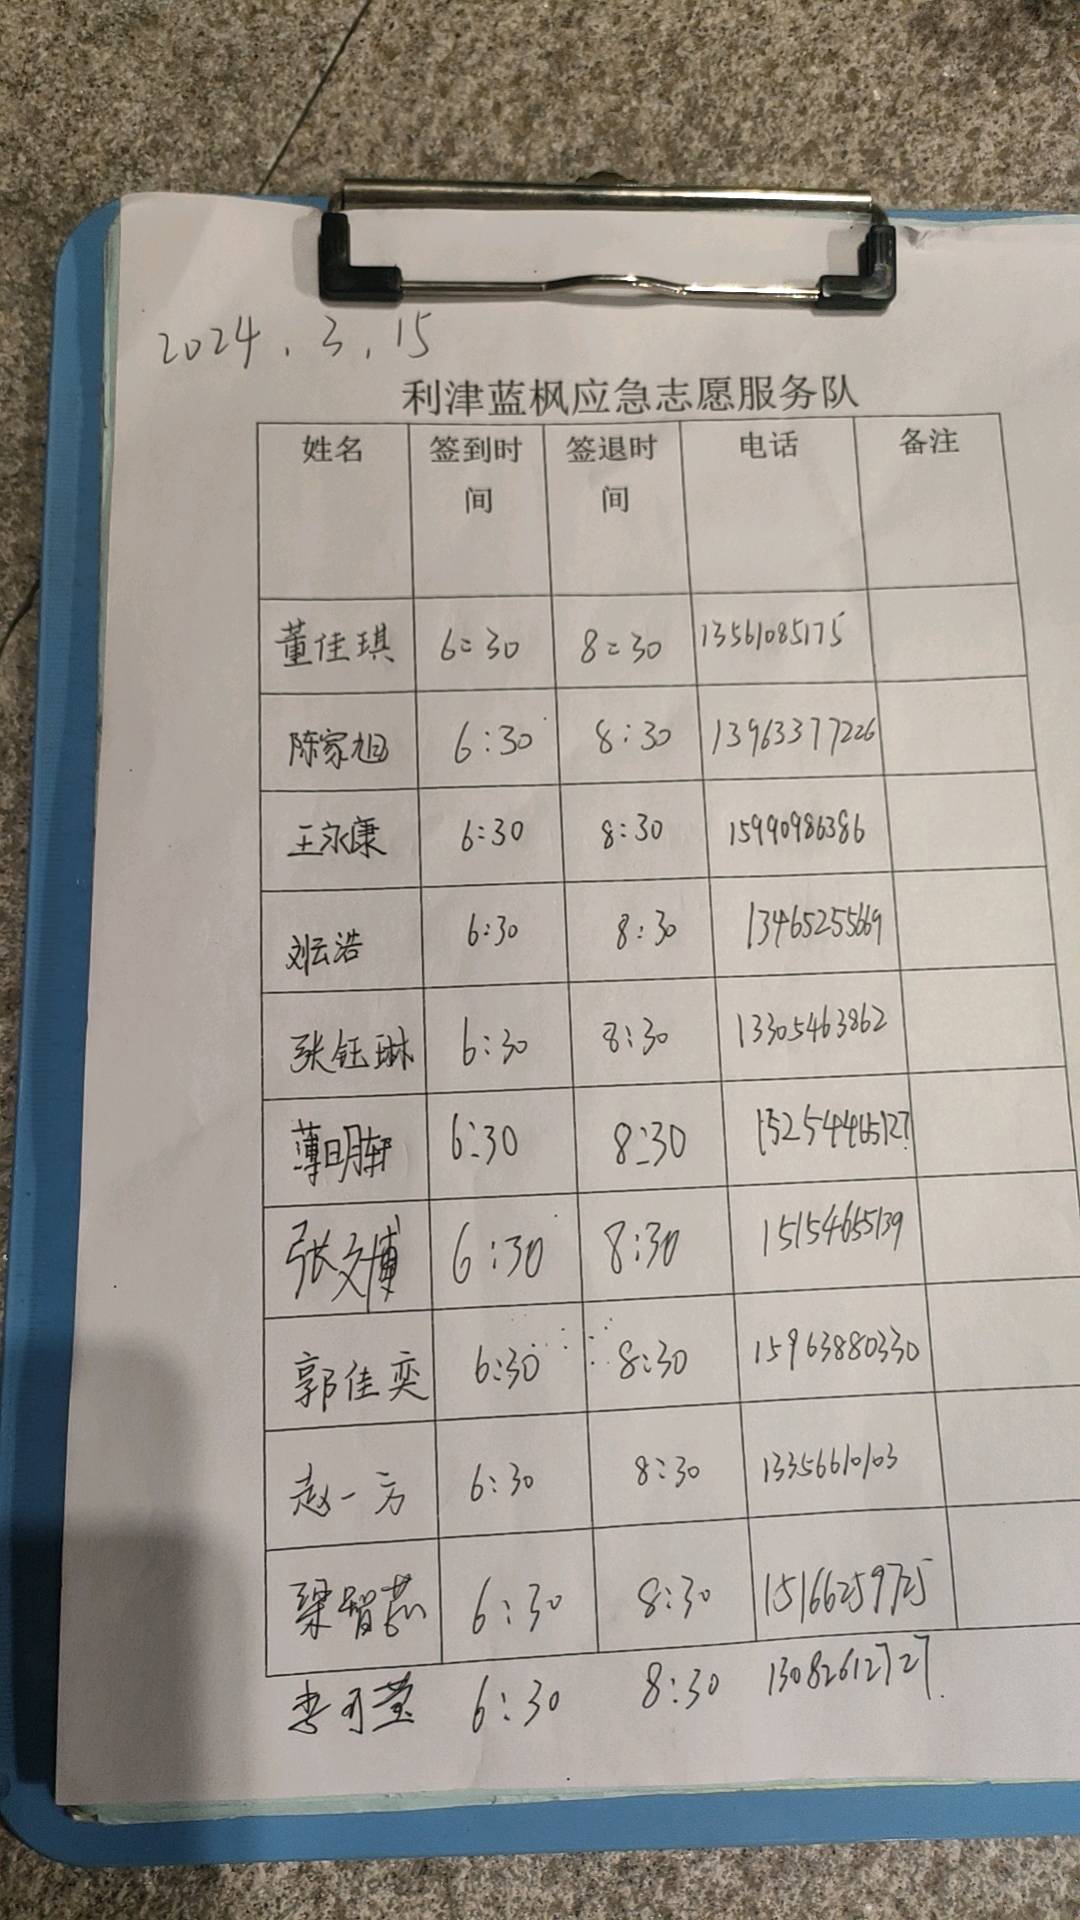 2024.3.15
利津蓝枫应急志愿服务队
姓名 签到时间 签退时间 电话 备注
董佳琪 6:30 8:30 13561085175
陈家旭 6:30 8:30 13963377226
王永康 6:30 8:30 15990986386
刘云浩 6:30 8:30 13465255669
张钰琳 6:30 8:30 13305463862
薄明轩 6:30 8:30 15254465127
张文博 6:30 8:30 15154655139
郭佳奕 6:30 8:30 15963880330
赵一方 6:30 8:30 13356610103
梁智 6:30 8:30 15166259725
李可莹 6:30 8:30 13082612727